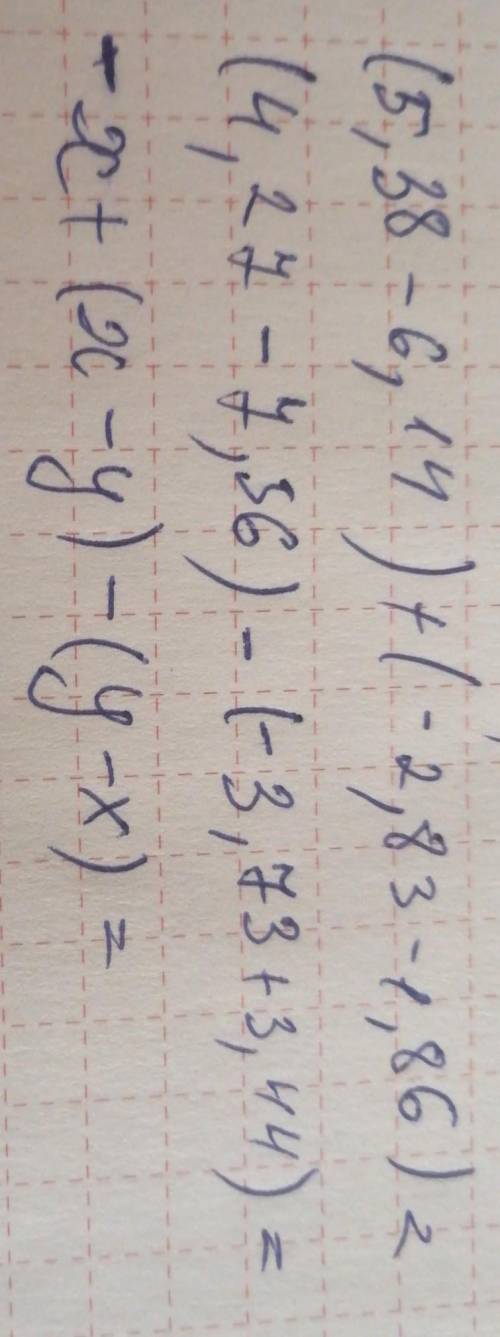 (5,38 - 6,14) + (-2,83 - 1,86) =
(4,27 - 7,56) - (-3,73 + 3,44) =
- x + (x - y) - (y - x) =